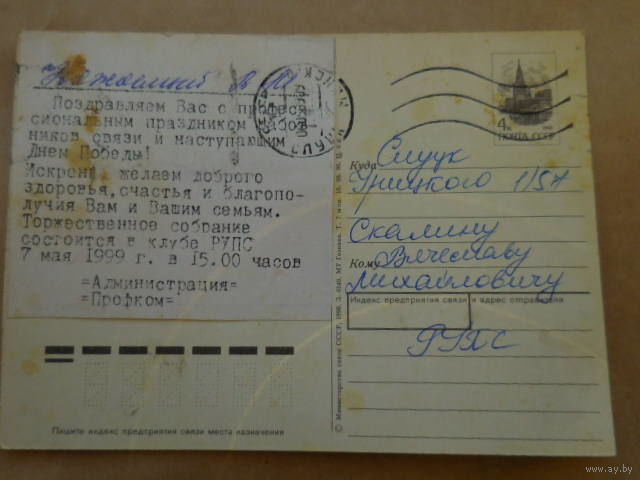 Уважаемый В М
Поздравляем Вас с профес-
сиональным праздником работ-
ников связи и наступающим
Днем Победы!
Искренне желаем доброго
здоровья,счастья и благопо-
лучия Вам и Вашим семьям.
Торжественное собрание
состоится в клубе РУПС
7 мая 1999 г. в 15.00 часов
=Администрация=
=Профком=
Пишите индекс предприятия связи места назначения
4к
ПОЧТА СССР
Куда Слуцк
Урицкого 1/57
Скалину
Кому Вячеславу
Михайловичу
Индекс предприятия связи и адрес отправителя
РУПС
© Министерство связи СССР, 1990.
www.ay.by